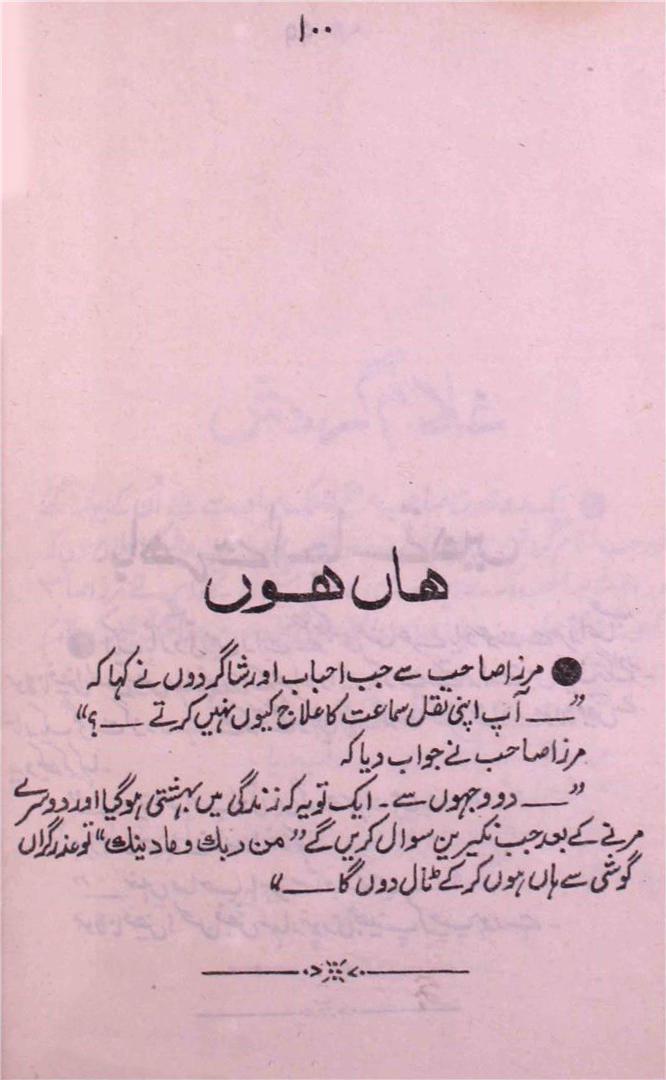 ۱۰۰
ھاں ھوں
● مرزا صاحب سے جب احباب اور شاگردوں نے کہا کہ
”— آپ اپنی ثقل سماعت کا علاج کیوں نہیں کرتے —؟“
مرزا صاحب نے جواب دیا کہ
”— دو وجہوں سے۔ ایک تو یہ کہ زندگی میں بہشتی ہو گیا اور دوسرے
مرنے کے بعد جب نکیرین سوال کریں گے ”من ربك وما دينك“ تو عذر گراں
گوشی سے ہاں ہوں کر کے ٹال دوں گا —“